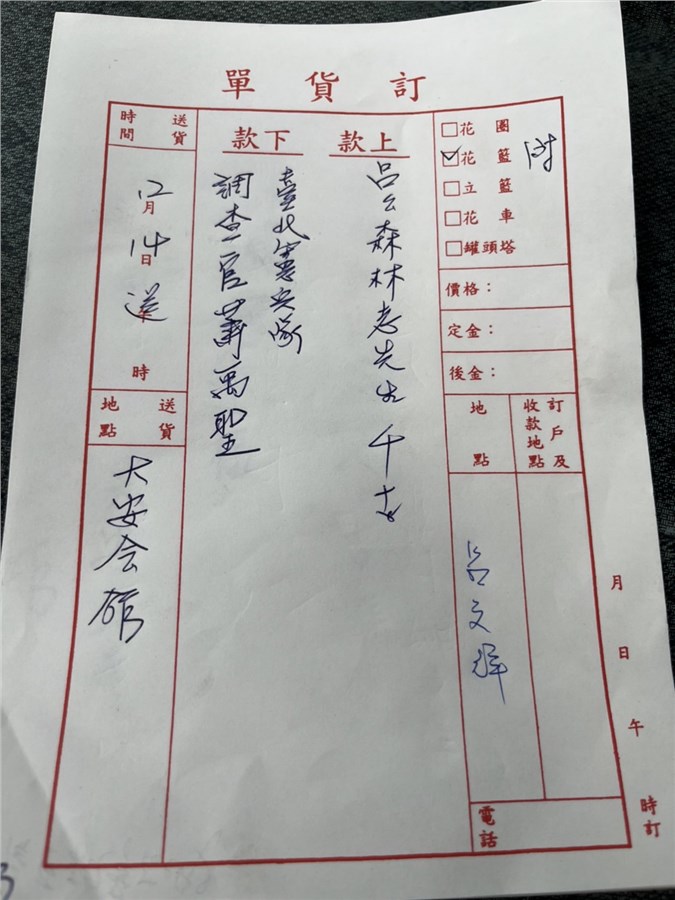 訂貨單
□花圈
☑花籃
□立籃
□花車
□罐頭塔
價格：
定金：
後金：
訂戶及
收款地點
地點
呂文祥
電話
上款
呂公森林老先生千古
下款
臺北憲兵隊
調查官蕭禹聖
送貨時間
12月
14日
送
時
送貨地點
大安会館
月日午時訂